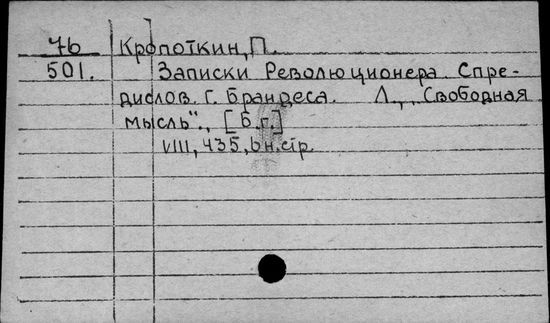 7б Кропоткин, П.
501. Записки Революционера. С пре-
дислов. г. Брандеса. Л., „Свободная
мысль"., [Б.г.]
VIII, 435, 6 н. стр.